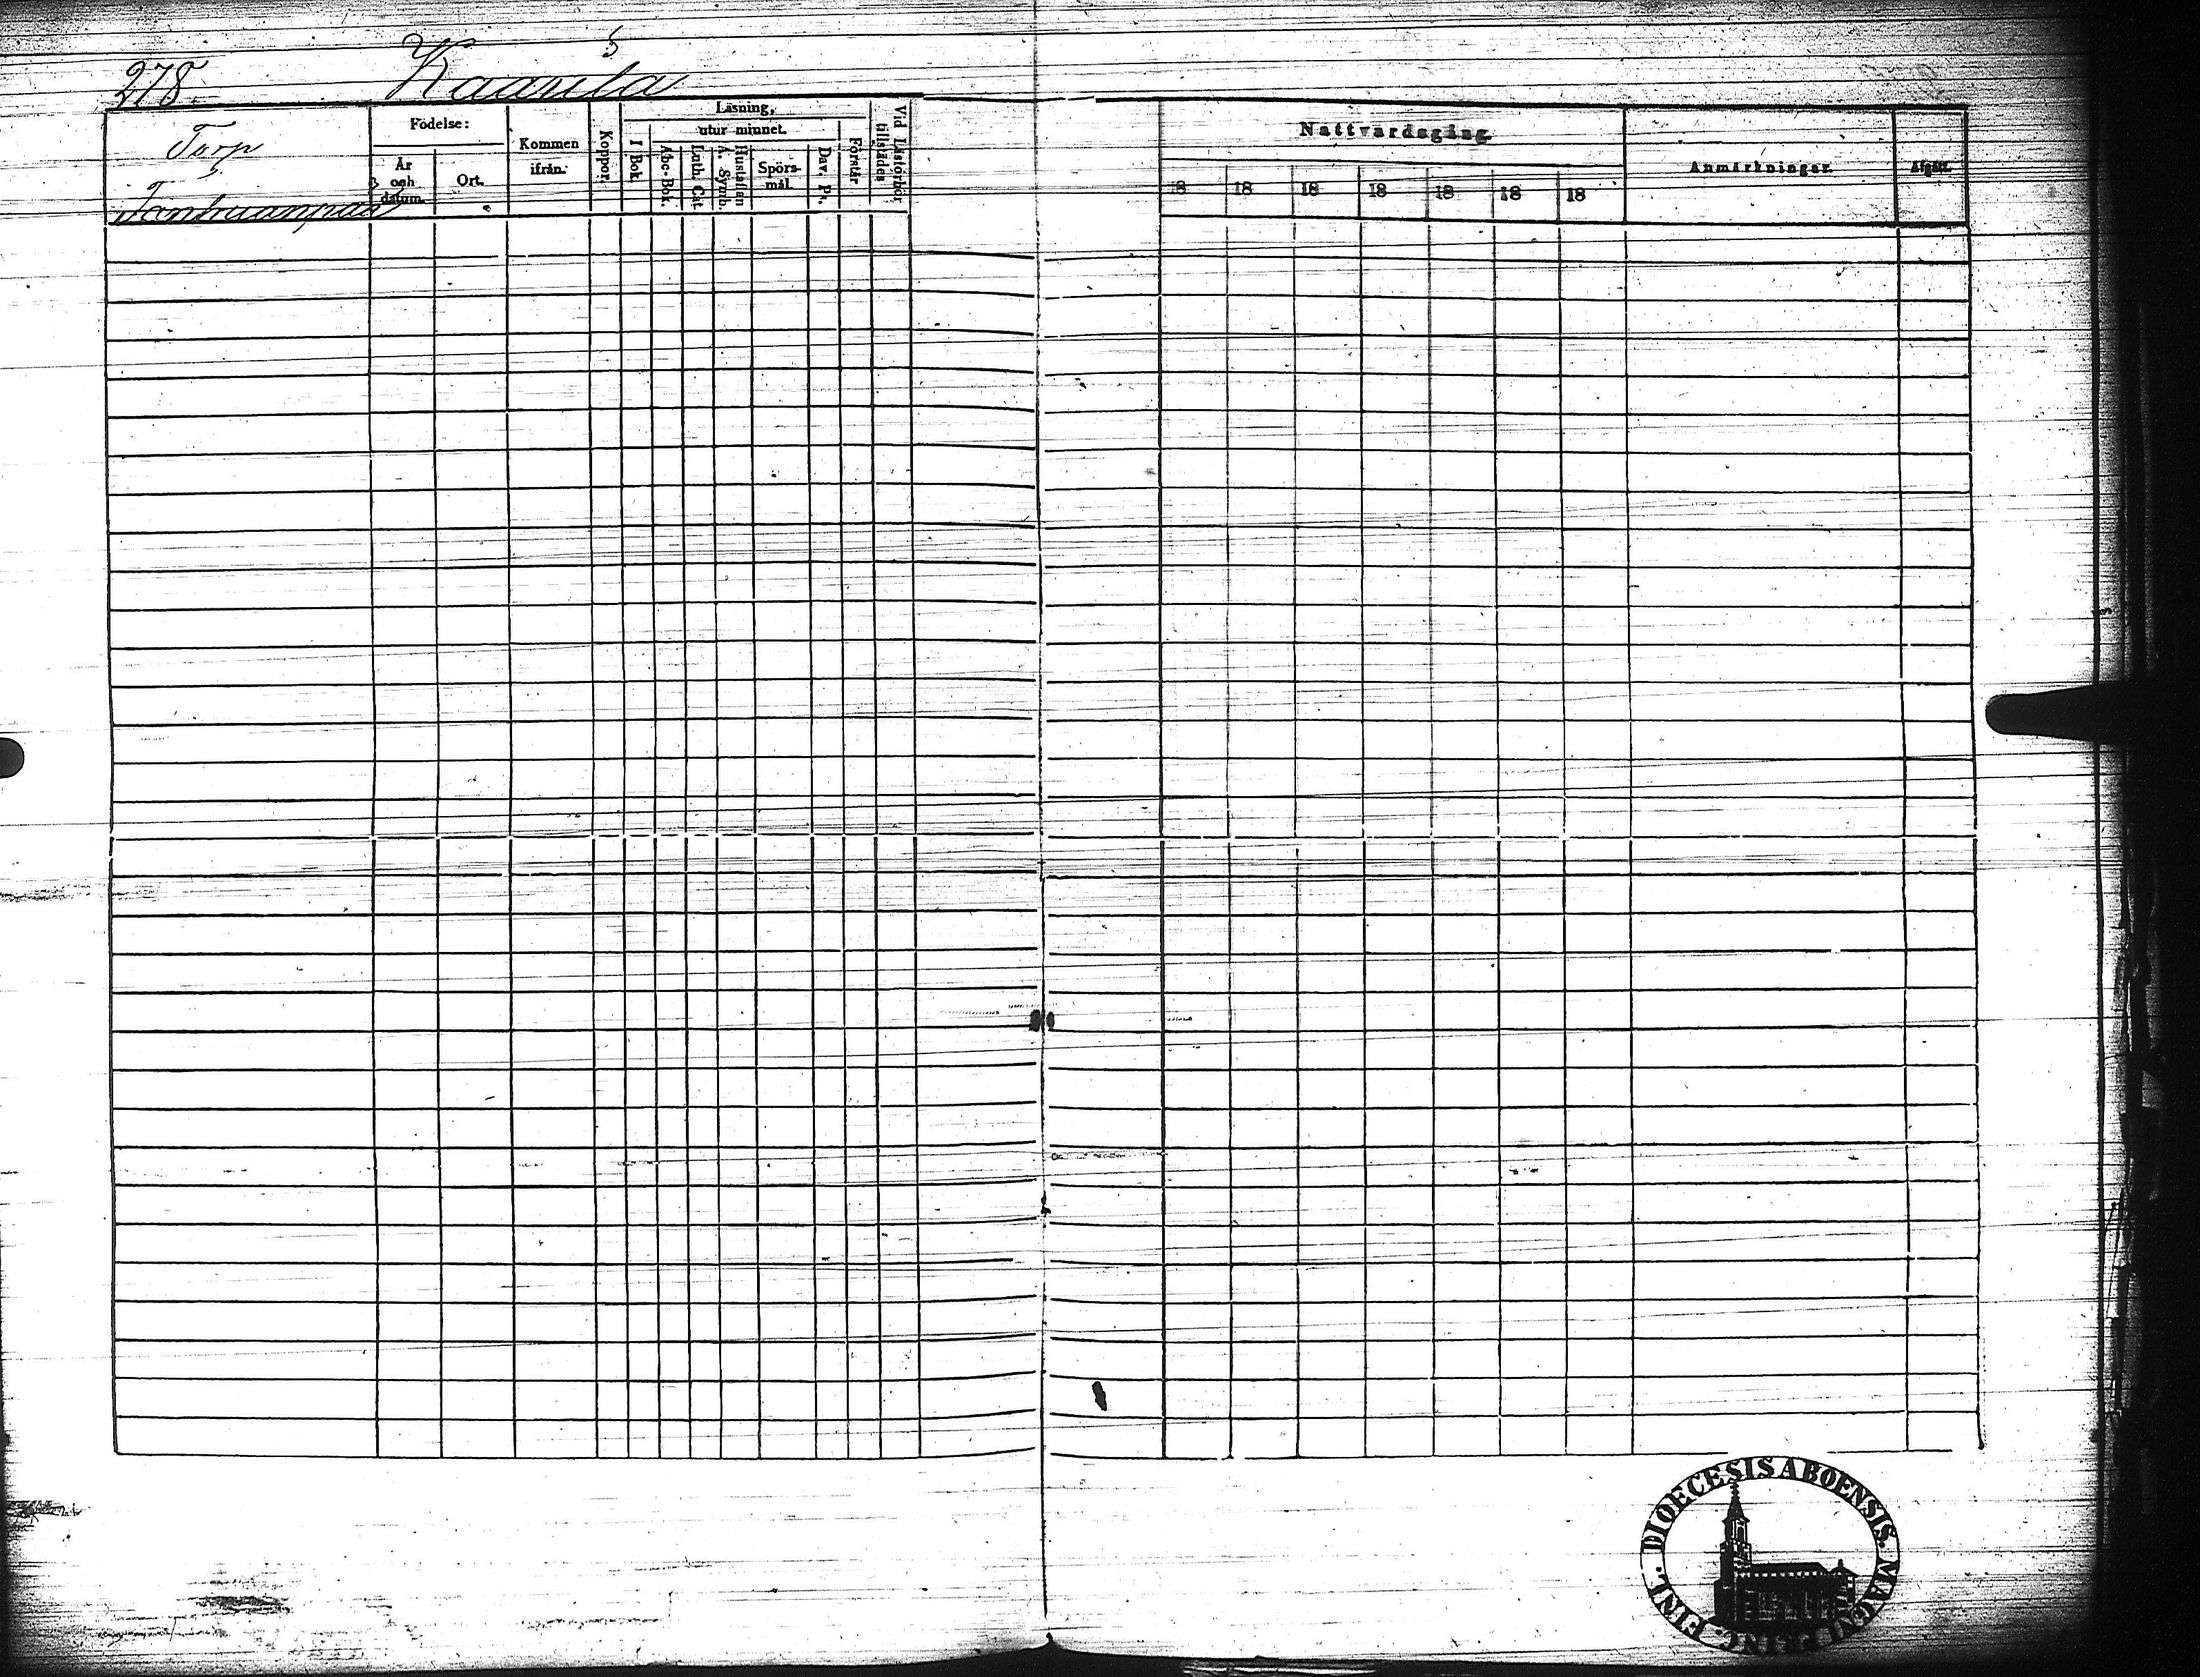 278.
Kaurila
Torp
Tonhuanpää
Födelse:
År och datum.
Ort.
Kommen ifrån.
Koppor.
Läsning,
utur minnet.
I Bok.
Abc-Bok.
Luth. Cat.
Hustaflan
A. Symb.
Spörs-
mål.
Dav. Ps.
Förstår
Vid Läsförhör
tillstädes
Nattvardsgång.
18 18 18 18 18 18 18
Anmärkningar.
Afgått.
DIOECESIS ABOENSIS. MAGNI PRINC. FINL.